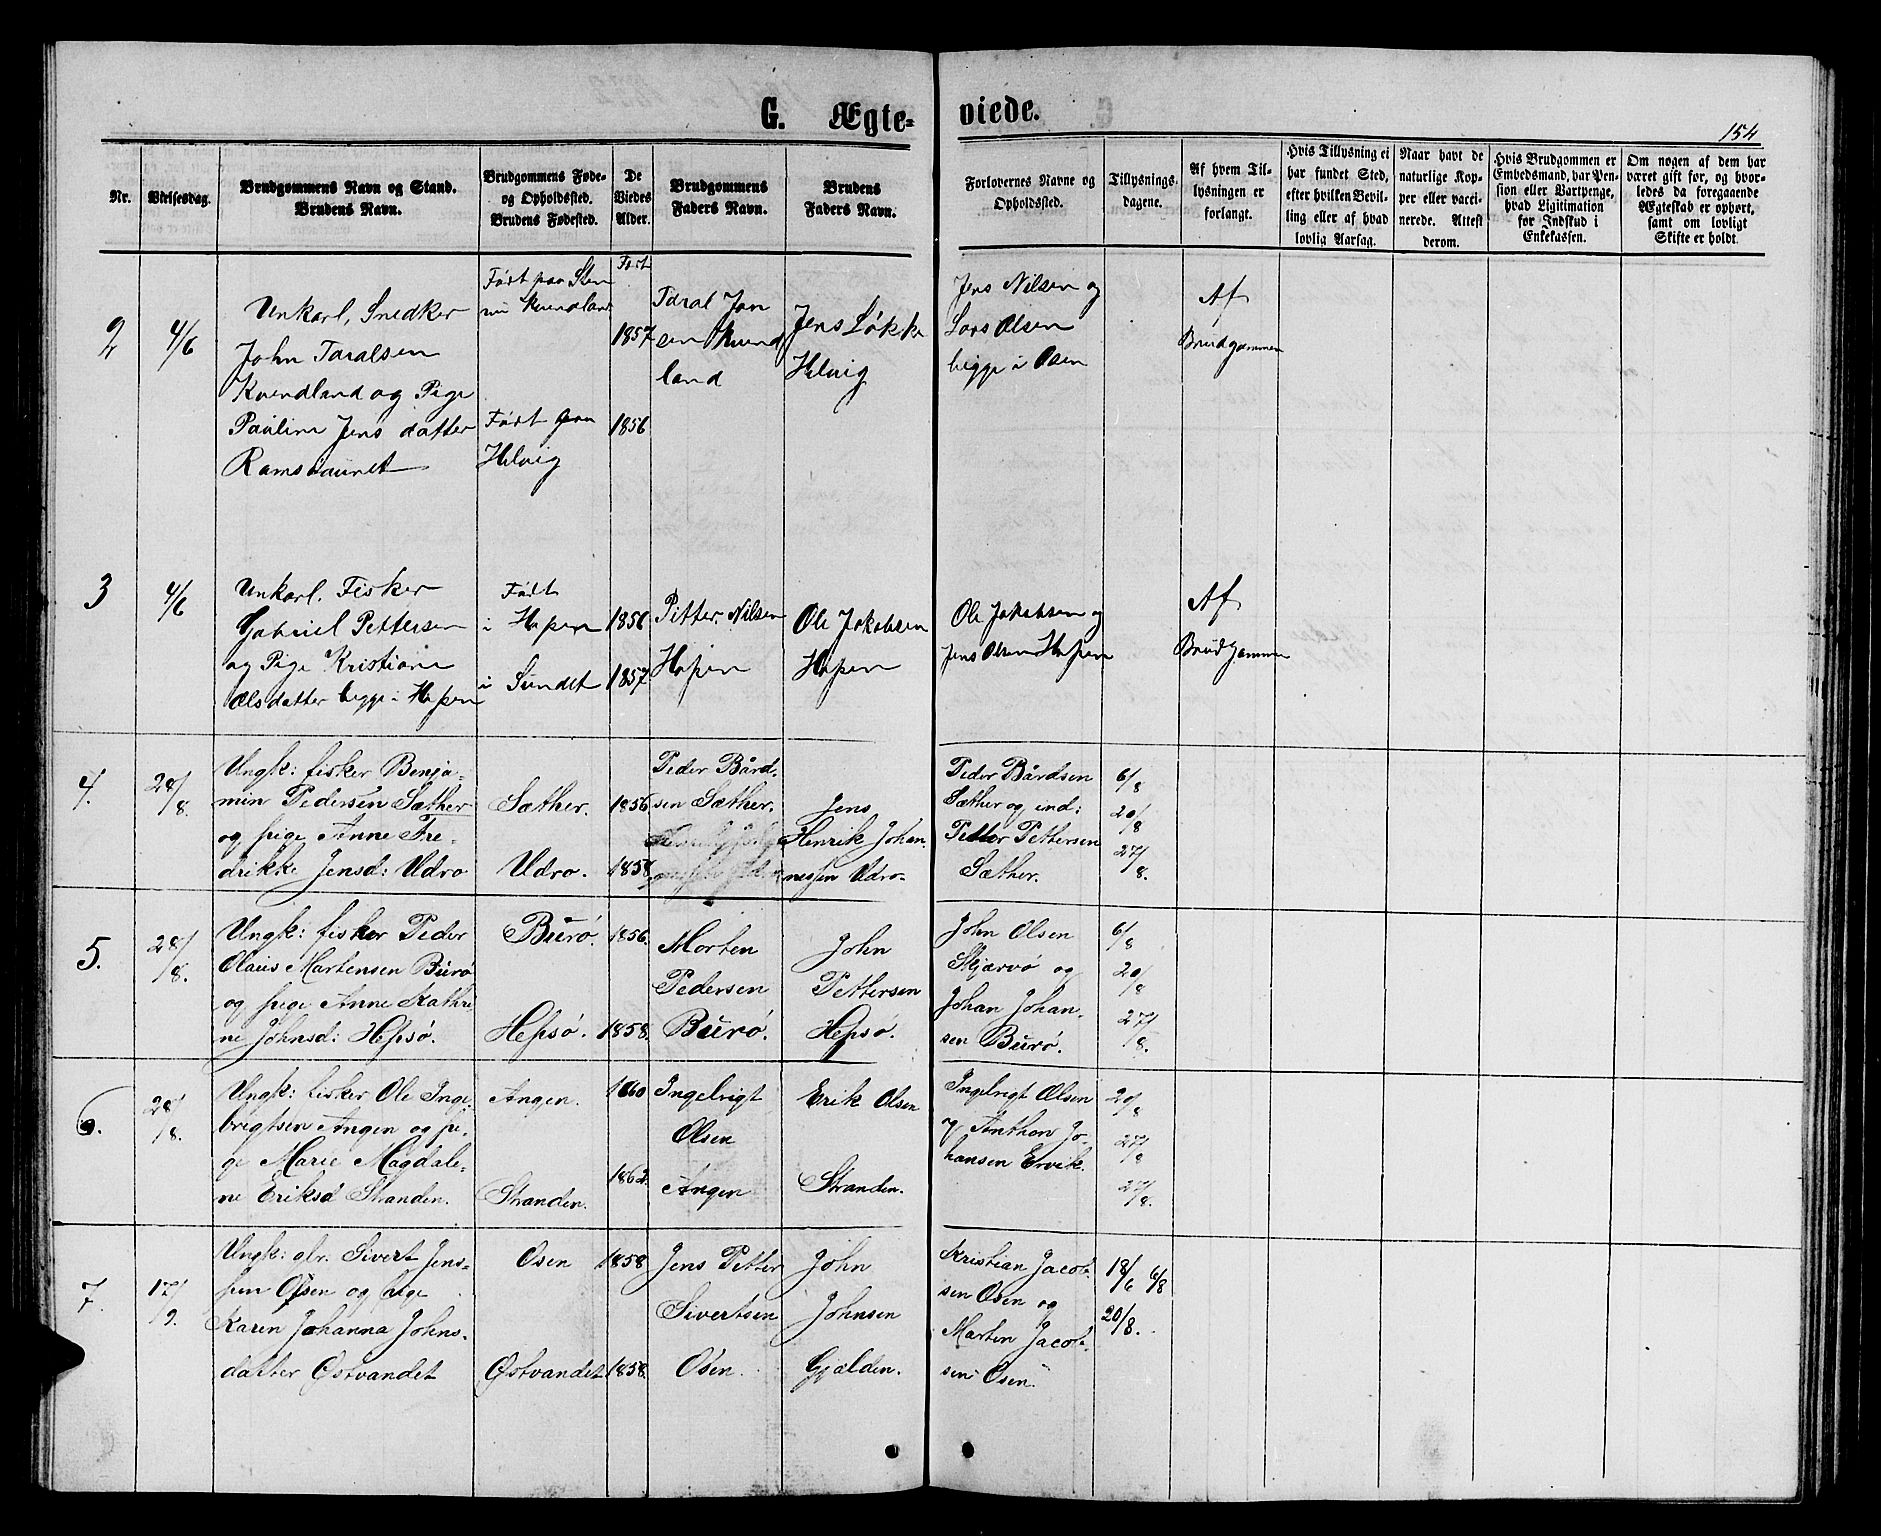 G. Ægte- viede.
154
Nr.
Vielsesdag.
Brudgommens Navn og Stand.
Brudens Navn.
Brudgommens Føde-
og Opholdssted.
Brudens Fødested.
De
Viedes
Alder.
Brudgommens
Faders Navn.
Brudens
Faders Navn.
Forlovernes Navne og
Opholdssted.
Tillysnings-
dagene.
Af hvem Til-
lysningen er
forlangt.
Hvis Tillysning ei
har fundet Sted,
efter hvilken Bevil-
ling eller af hvad
lovlig Aarsag.
Naar havt de
naturlige Kop-
per eller vacci-
nerede. Attest
derom.
Hvis Brudgommen er
Embedsmand, har Pen-
sion eller Vartpenge,
hvad Legitimation
for Indskud i
Enkekassen.
Om nogen af dem har
været gift før, og hvor-
ledes da foregaaende
Ægteskab er ophørt,
samt om lovligt
Skifte er holdt.
2
4/6
Unkarl, Snedker
John Taralsen
Kvendland og Pige
Pauline Jens datter
Født paa
Kvendland
Født paa
Helvig
Født
1857
1856
Taral Jon
sen Kvend
land
Jens Løkke
Helvig
Jens Nilsen og
Lars Olsen
begge i Osen
Af
Brudgommen
3
4/6
Unkarl. Fisker
Gabriel Pettersen
og Pige Kristiane
Olsdatter begge i Hopen
Født
i Hopen
i Sundet
1856
1857
Pitter Nilsen
Hopen
Ole Jakobsen
Hopen
Ole Jakobsen og
Jens Olsen Hopen
Af
Brudgommen
4.
28/8.
Ungk: fisker Benja-
min Pedersen Sæther
og pige Anne Fre-
drikke Jensd: Udro
Sæther.
Udro.
1856
1858
Peder Bård-
sen Sæther.
Jens
Henrik Johan-
nessen Udro.
Peder Bårdsen
Sæther og
Petter Pettersen
Sæther.
6/8
20/8
27/8.
5.
28/8.
Ungk: fisker Peder
Olaus Martensen Burø
og pige Anne Kathri-
ne Johnsd: Hepsø.
Burø.
Hepsø.
1856.
1858.
Morten
Pedersen
Burø.
John
Pettersen
Hepsø.
John Olsen
Skjærvø og
Johan Johan-
sen Burø.
6/8
20/8
27/8.
6.
28/8.
Ungk: fisker Ole Inge-
brigtsen Angen og pi-
ge Marie Magdale-
ne Eriksd Stranden.
Angen.
Stranden.
1860
1862.
Ingebrigt
Olsen
Angen
Erik Olsen
Stranden.
Ingebrigt Olsen
og Anthon Jo-
hansen Ervik.
20/8
27/8
27/8.
7.
17/9.
Ungk: Sivert Jens-
sen Osen og pige
Karen Johanna Johns-
datter Østvandet
Osen
Østvandet
1858
1858.
Jens Petter
Sivertsen
Osen.
John
Johnsen
Gjælden.
Kristian Jacob-
sen Osen og
Martin Jacob-
sen Osen.
18/6 6/8
20/8.